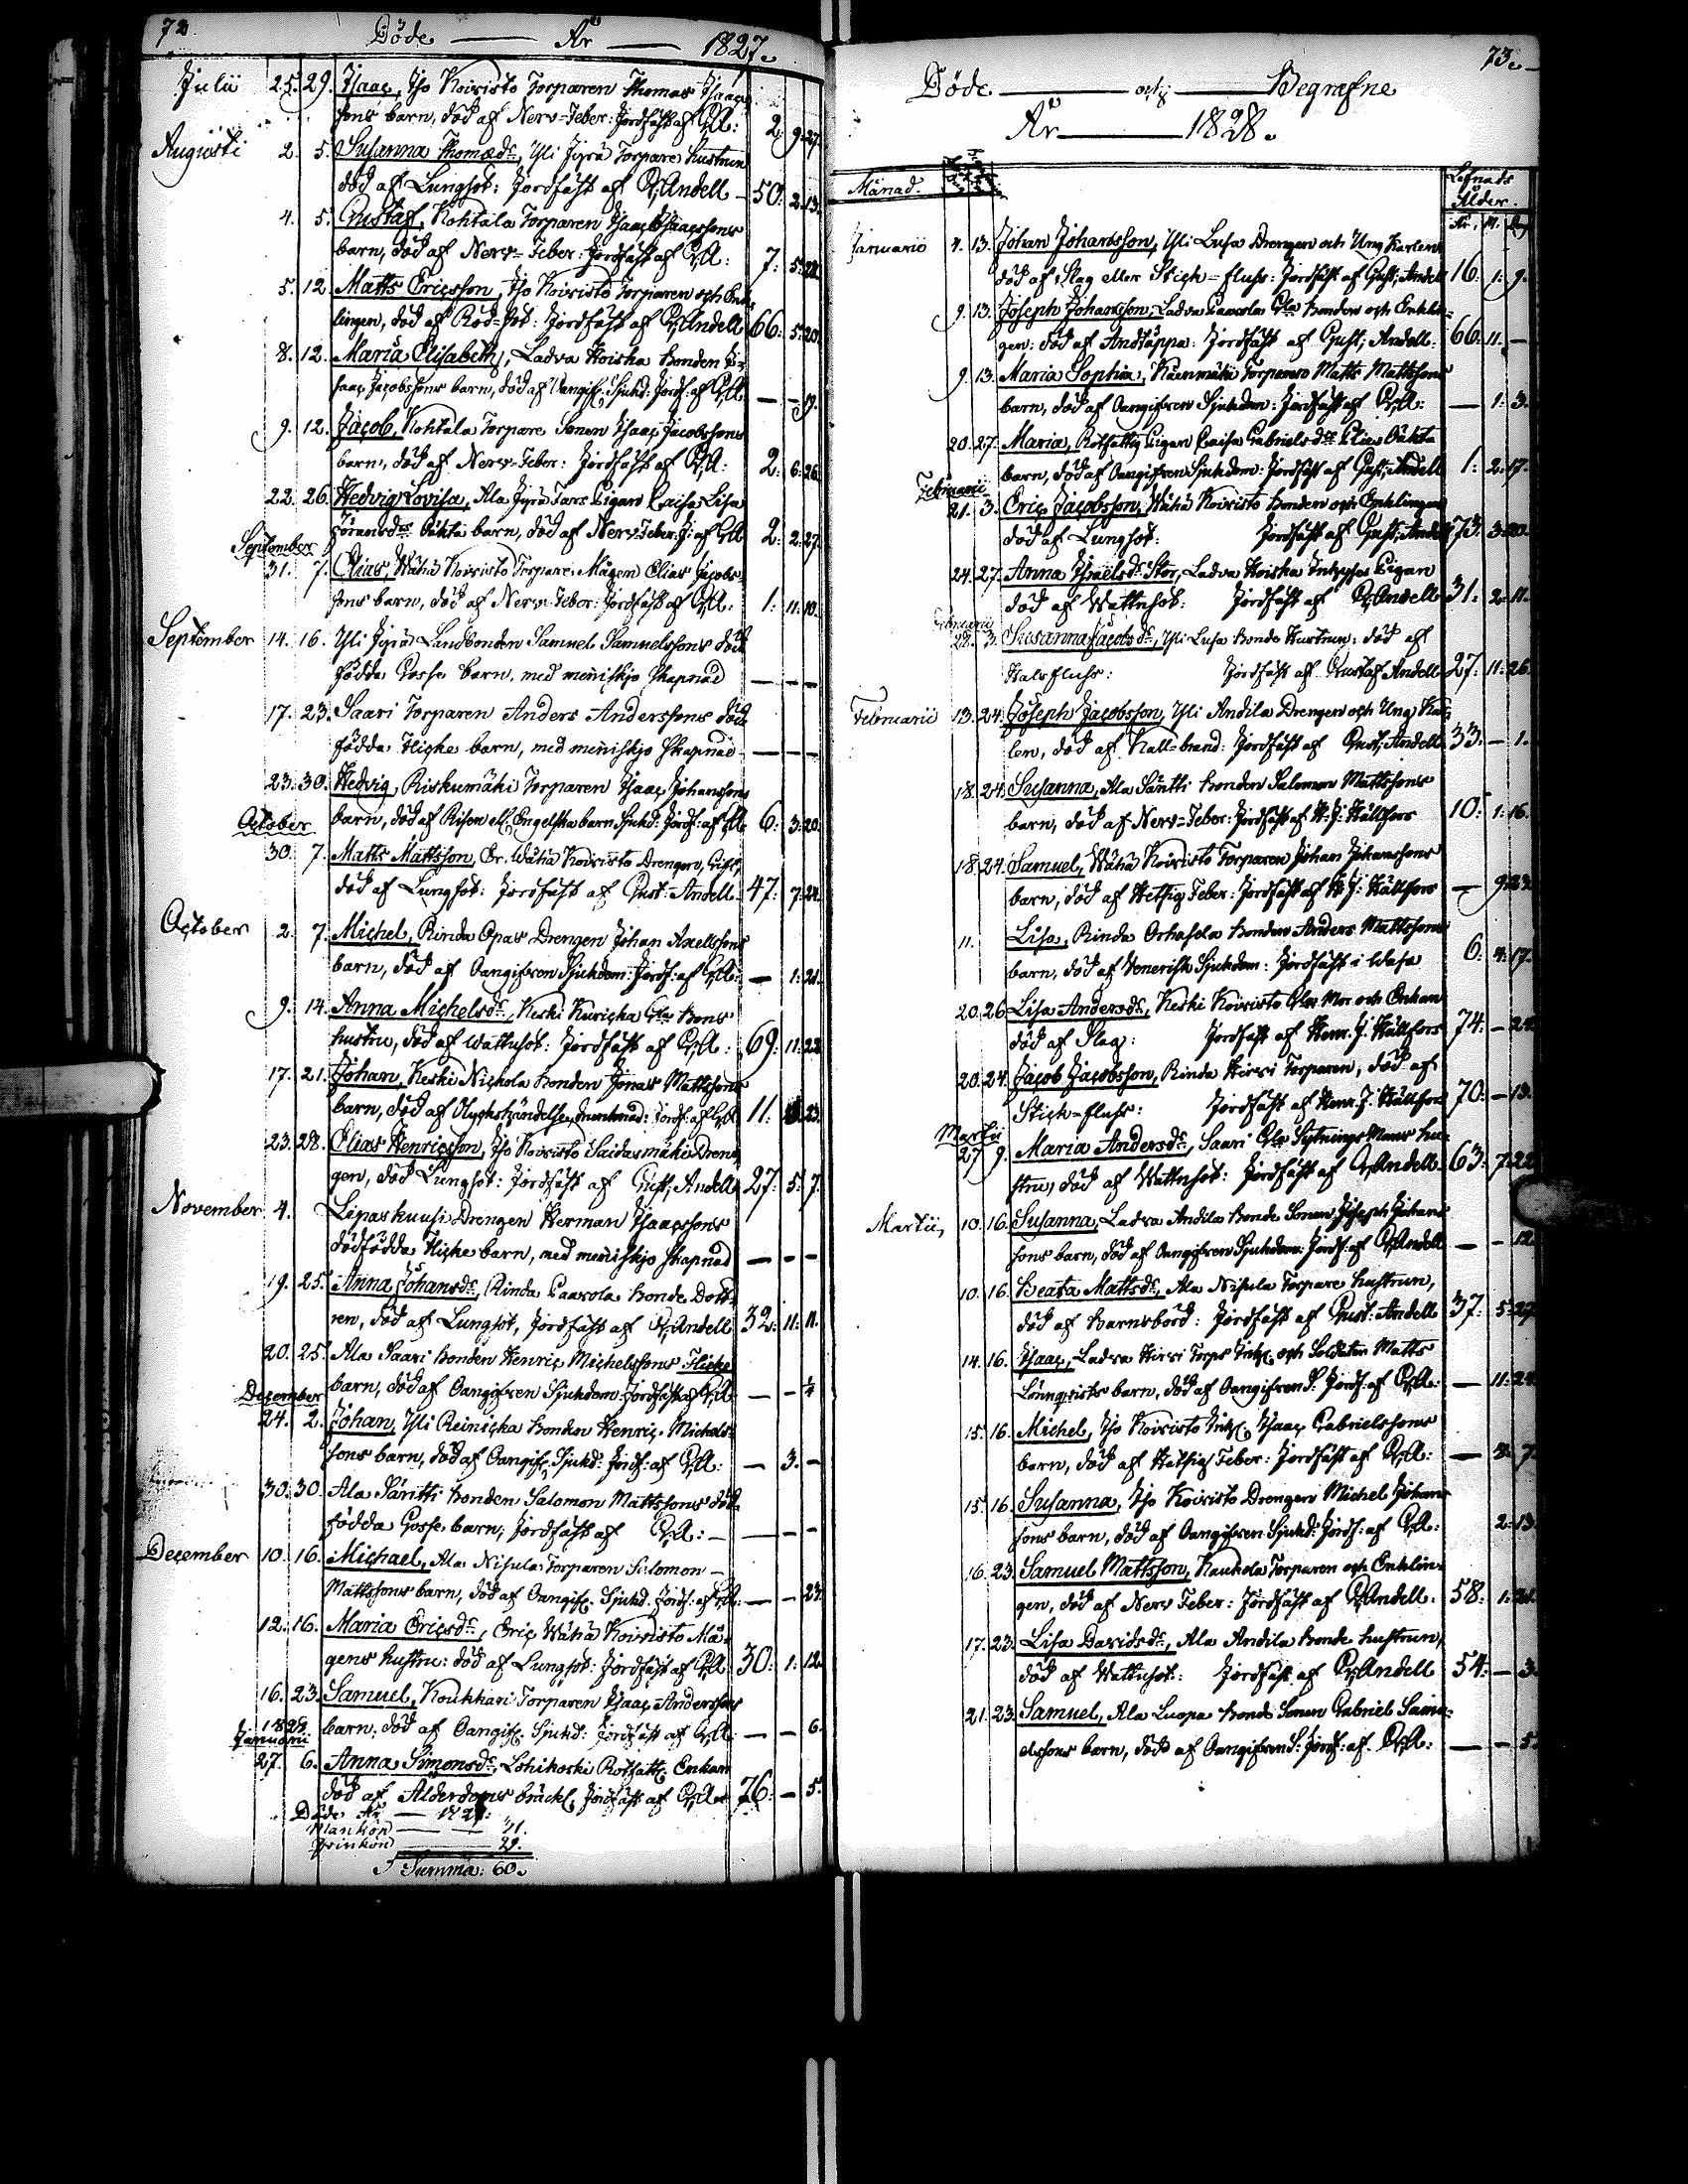 72. Döde — År — 1827.
Julii 25. 29. Isaac, Iso Koivisto Torparen Thomas Isaacs
sons barn, död af Nerv-Feber: Jordfäst af G.A: 2. 9. 27.
Augusti 2. 5. Susanna Thomædr, Yli Jyrä Torpare hustrun
död af Lungsot: Jordfäst af G. Andell 50. 2. 13.
4. 5. Gustaf, Kohtala Torparen Isaac Isaacssons
barn, död af Nerv-Feber: Jordfäst af G.A: 7: 5:
5. 12. Matts Ericsson, Iso Koivisto Torparen och Enk-
lingen, död af Röd-Sot: Jordfäst af G. Andell 66: 5:
8. 12. Maria Elisabeth, Ladva Hoiska bonden I-
saac Jacobssons barn, död af Oangifv: Sjukd: Jordf: af G.A — — 19.
9. 12. Jacob, Kohtala Torpare Sonen Isaac Jacobssons
barn, död af Nerv-Feber: Jordfäst af G.A: 2: 6: 26.
22. 26. Hedvig Lovisa, Ala Jyrä Pigan Caisa Lisa
barn, död af Nerv Feber: J: af G.A 2: 2: 27.
September
31. 7. Elias, Wähä Koivisto Torpare Mågen Elias Jacobs-
sons barn, död af Nerv-Feber: Jordfäst af G.A: 1: 11: 10.
September 14. 16. Yli Jyrä Landbonden Samuel Samuelssons död
födda Gosse barn, med menniskjo skapnad — — —
17. 23. Saari Torparen Anders Anderssons död
födda Flicke barn, med menniskjo skapnad — — —
23. 30. Hedvig, Riskumäki Torparen Isaac Johanssons
October barn, död af Risen ell: Engelska barn Sjukd: Jordf: af G.A 6: 3: 20.
30. 7. Matts Mattsson, Er. Wähä Koivisto Drengen, Gift,
död af Lungsot: Jordfäst af Gust: Andell 47: 7: 24.
October 2. 7. Michel, Rinda Opas Drengen Johan Axellssons
barn, död af Oangifven Sjukdom: Jordf: af G.A: — 1: 21.
9. 14. Anna Michelsdr, Keski Kuricka Gla Bons
hustru, död af Wattusot: Jordfäst af G.A: 69: 11: 22
17. 21. Johan, Keski Nickola bonden Jonas Mattssons
barn, död af Olyckshändelse, drunknad: Jordf: af G.A 11: 23.
23. 28. Elias Henricsson, Iso Koivisto Saidasmäki Dren-
gen, död Lungsot: Jordfäst af Gust; Andell 27: 5: 7.
November 4. Lepaskuusi Drengen Herman Isaacssons
dödfödda Flicke barn, med menniskjo skapnad — — —
19. 25. Anna Johansdr, Rinda Paavola Bonde Dott-
ren, död af Lungsot, Jordfäst af G. Andell 32: 11: 11.
20. 25. Ala Saari bonden Henric Michelssons Flicke
December barn, död af Oangifven Sjukdom: Jordfäst af G.A: — — ¼
24. 2. Johan, Yli Reinicka bonden Henric Michels-
sons barn, död af Oangif: Sjukd: Jordf: af G.A: — 3. —
30. 30. Ala Säntti bonden Salomon Mattssons död-
födda Gosse barn, Jordfäst af G.A: — — — —
December 10. 16. Michael, Ala Nisula Torparen Salomon
Mattssons barn, död af Oangif: Sjukd. Jordf: af G.A: — — 23.
12. 16. Maria Ericsdr, Eric Wähä Koivisto Må-
gens hustru: död af Lungsot: Jordfäst af G.A 30: 1: 12
16. 23. Samuel, Koukkari Torparen Isaac Anderssons
1828. barn, död af Oangif: Sjukd: Jordfäst af G.A. — — 6.
Januarii
27. 6. Anna Simonsdr, Lohikoski Enkan
död af Ålderdoms bräckl; Jordfäst af G.A 76: — 5.
Döde År — 1827:
Mankön — — 31.
Qvinkön — 29.
Summa: 60.
73.
Döde — och — Begrafne
År — 1828.
Månad. Lefnads
Ålder.
År. M. Dag
Januarii 4. 13. Johan Johansson, Yli Lusa Drengen och Ung Karlen
död af Slag eller Stick-fluss: Jordfäst af Gust; Andell 16: 1: 9.
9. 13. Joseph Johansson, Ladva Paavola Gla Bonden och Enklin-
gen: död af Andtäppa: Jordfäst af Gust; Andell: 66: 11. —
9. 13. Maria Sophia, Käenmäki Torparen Matts Mattssons
barn, död af Oangifven Sjukdom: Jordfäst af G.A: — 1: 3.
20. 27. Maria, Rotfattig Pigan Caisa Gabrielsdr
barn, död af Oangifven Sjukdom: Jordfäst af Gust; Andell 1: 2: 17.
Februarii
21. 3. Eric Jacobsson, Wähä Koivisto bonden och Enklingen
död af Lungsot: Jordfäst af Gust; Andell 73: 3:
24. 27. Anna Israelsdr Stor, Ladva Hoiska Inhyses Pigan
död af Wattusot: Jordfäst af G. Andell 31. 2. 11.
Februarii
22. 3. Susanna Jacobsdr, Yli Lusa Bonde Hustrun: död af
Halsfluss: Jordfäst af Gustaf Andell 27: 11: 26.
Februarii 13. 24. Joseph Jacobsson, Yli Andila Drengen och Ung Kar-
len, död af Kall-brand: Jordfäst af Gust; Andell 33: — 1.
18. 24. Susanna, Ala Säntti bonden Salomon Mattssons
barn, död af Nerv-Feber: Jordfäst af H: J: Hällfors 10: 1: 16.
18. 24. Samuel, Wähä Koivisto Torparen Johan Johanssons
barn, död af Hetsig Feber: Jordfäst af H: J: Hällfors — 9: 23.
11. Lisa, Rinda Orhasela bonden Anders Mattssons
barn, död af Venerisk Sjukdom: Jordfäst i Wasa 6: 4: 17.
20. 26. Lisa Andersdr, Keski Koivisto Gla Mor och Enkan
död af Slag: Jordfäst af Henr. J. Hällfors 74. —
20. 24. Jacob Jacobsson, Rinda Hirvi Torparen, död af
Stick-fluss: Jordfäst af Henr. J: Hällfors 70: — 13.
Martii
27. 9. Maria Andersdr, Saari Gla Sytnings Mans hu-
stru, död af Wattusot: Jordfäst af G. Andell 63: 7: 22
Martii, 10. 16. Susanna, Ladva Andila Bonde Sonen Joseph Johans-
sons barn, död af Oangifven Sjukdom: Jordf: af G. Andell — — 12
10. 16. Beata Mattsdr, Ala Nisula Torpare hustrun,
död af Barnsbörd: Jordfäst af Gust: Andell 37: 5: 27
14. 16. Isaac, Ladva Hirvi Torps Inh: och Soldaten Matts
Lönnqvists barn, död af Oangifven S: Jordf: af G.A: — 11:
15. 16. Michel, Iso Koivisto Inh; Isaac Gabrielssons
barn, död af Hetsig Feber: Jordfäst af G.A: — 7.
15. 16. Susanna, Iso Koivisto Drengen Michel Johans-
sons barn, död af Oangifven Sjukd: Jordf: af G.A: 2: 13.
16. 23. Samuel Mattsson, Kauhola Torparen och Enklin-
gen, död af Nerv Feber: Jordfäst af G. Andell. 58: 1:
17. 23. Lisa Davidsdr, Ala Andila bonde hustrun,
död af Wattusot: Jordfäst af G. Andell 54: — 3.
21. 23. Samuel, Ala Luopa Bonde Sonen Gabriel Samu-
elssons barn, död af Oangifven S: Jordf: af G.A: — — 5.